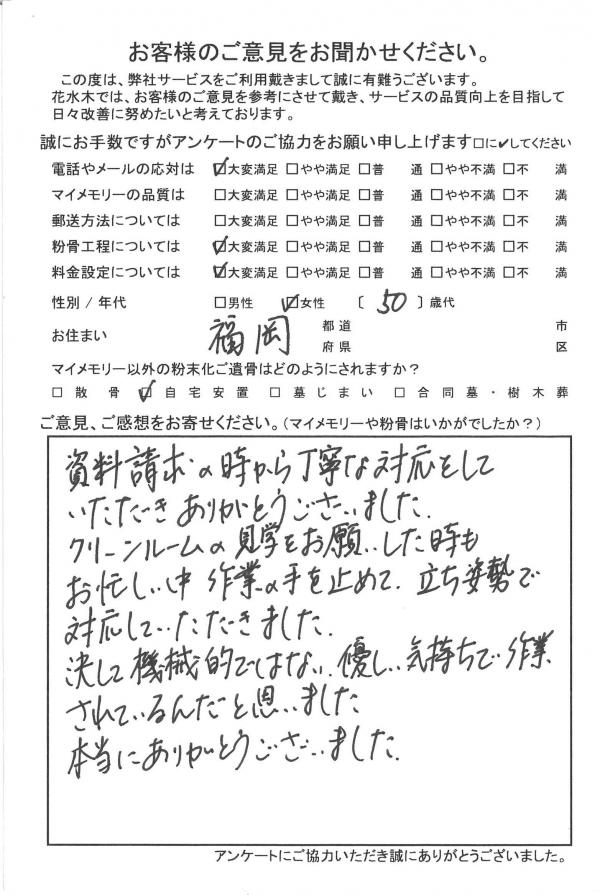 お客様のご意見をお聞かせください。
この度は、弊社サービスをご利用戴きまして誠に有難うございます。
花水木では、お客様のご意見を参考にさせて戴き、サービスの品質向上を目指して
日々改善に努めたいと考えております。
誠にお手数ですがアンケートのご協力をお願い申し上げます□に✔してください
電話やメールの応対は ☑大変満足 □やや満足 □普 通 □やや不満 □不 満
マイメモリーの品質は □大変満足 □やや満足 □普 通 □やや不満 □不 満
郵送方法については □大変満足 □やや満足 □普 通 □やや不満 □不 満
粉骨工程については ☑大変満足 □やや満足 □普 通 □やや不満 □不 満
料金設定については ☑大変満足 □やや満足 □普 通 □やや不満 □不 満
性別 / 年代 □男性 ☑女性 〔 50 〕歳代
お住まい 福岡 都道府県 市区
マイメモリー以外の粉末化ご遺骨はどのようにされますか?
□ 散 骨 ☑ 自宅安置 □ 墓じまい □ 合同墓・樹木葬
ご意見、ご感想をお寄せください。(マイメモリーや粉骨はいかがでしたか?)
資料請求の時から丁寧な対応をして
いただきありがとうございました。
クリーンルームの見学をお願いした時も
お忙しい中 作業の手を止めて、立ち姿勢で
対応していただきました。
決して機械的ではない、優しい気持ちで作業
されているんだと思いました
本当にありがとうございました。
アンケートにご協力いただき誠にありがとうございました。